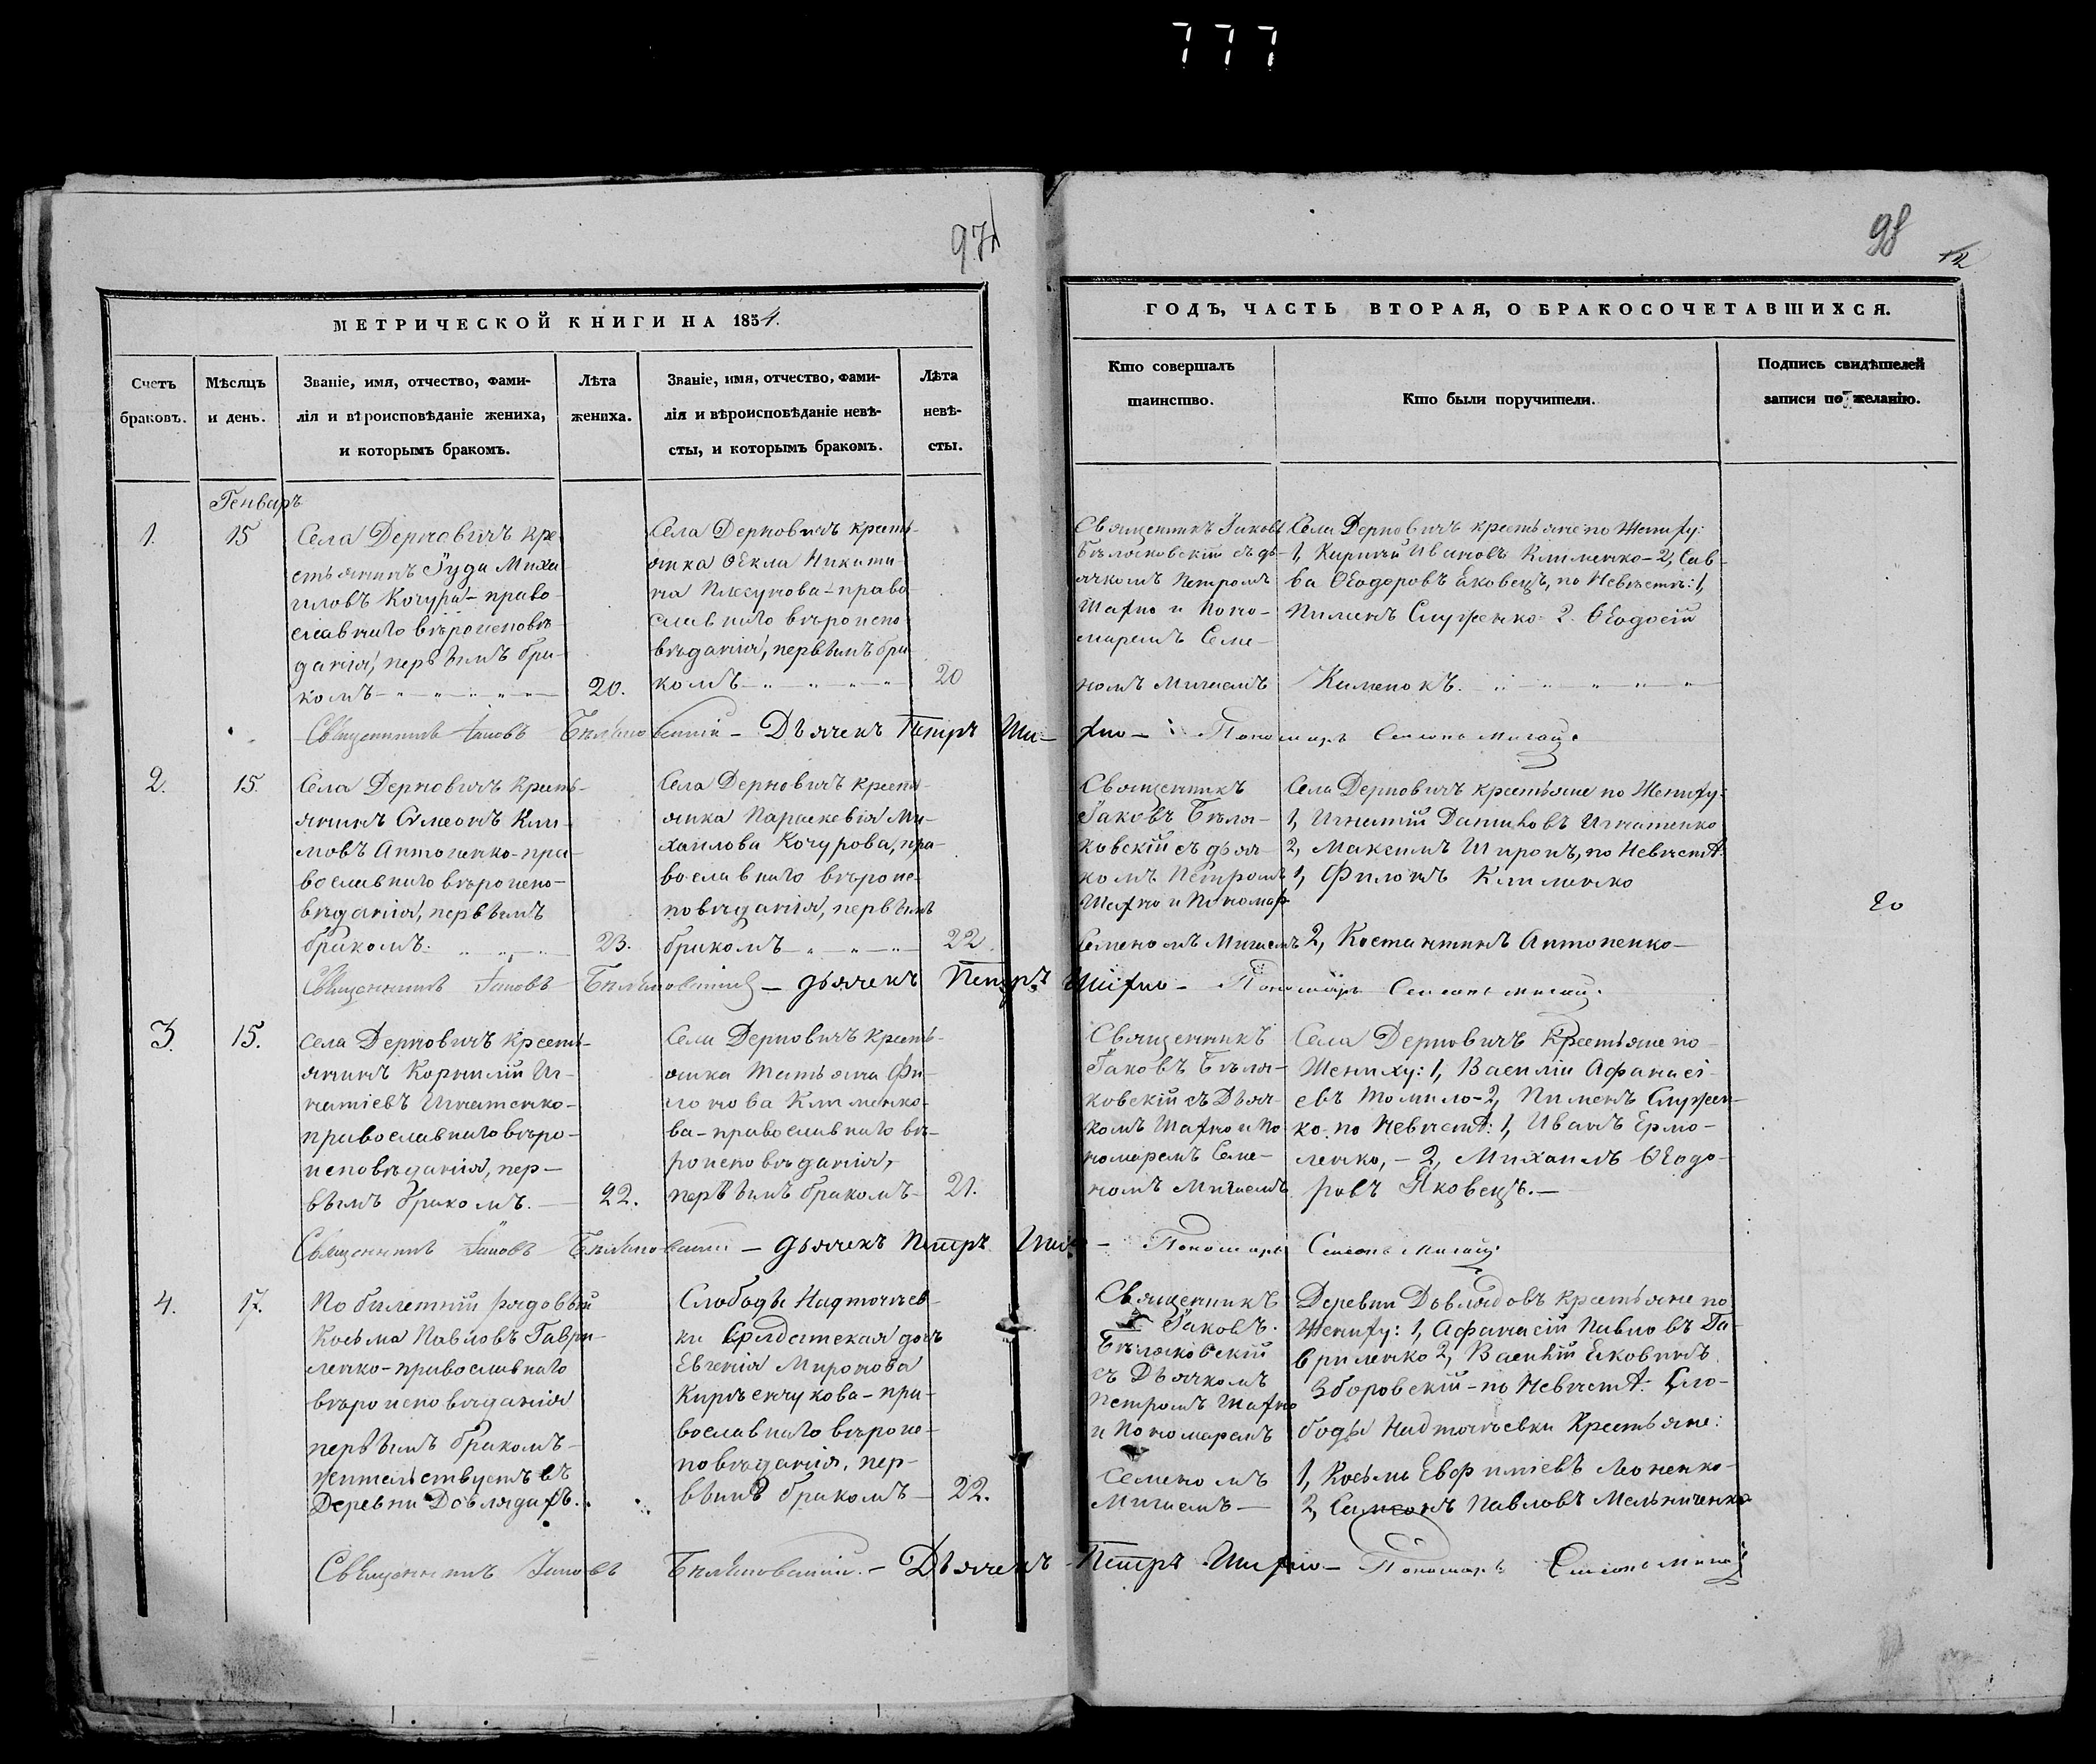 777
97
98
12
МЕТРИЧЕСКОЙ КНИГИ НА 1854.
Счетъ браковъ.
Мѣсяцъ и день.
Званіе, имя, отчество, фами-
лія и вѣроисповѣданіе жениха,
и которымъ бракомъ.
Лѣта жениха.
Званіе, имя, отчество, фами-
лія и вѣроисповѣданіе невѣ-
сты, и которымъ бракомъ.
Лѣта невѣ-
сты.
ГОДЪ, ЧАСТЬ ВТОРАЯ, О БРАКОСОЧЕТАВШИХСЯ.
Кто совершалъ
таинство.
Кто были поручители.
Подпись свидѣтелей
записи по желанію.
Генварь
1.
15
Села Дерновичъ кре-
стьянинъ Іуда Миха-
иловъ Кочура - право-
славнаго вѣроисповѣ-
данія, первымъ бра-
комъ
20.
Села Дерновичъ кресть-
янка Ѳекла Никити-
на Плесунова - право-
славнаго вѣроиспо-
вѣданія, первымъ бра-
комъ
20
Священникъ Іаковъ
Бѣляковскій съ дь-
ячкомъ Петромъ
Шахно и Поно-
маремъ Семе-
номъ Мигаемъ
Села Дерновичъ крестьяне по Жениху:
1, Кирилъ Ивановъ Клименко - 2, Сав-
ва Ѳеодоровъ Яковецъ, по Невѣстѣ: 1,
Пименъ Служенко 2. Ѳеодосій
Каменокъ.
Священникъ Іаковъ Бѣляковскій - Дьячекъ Петръ Шахно - Пономарь Семенъ Мигай.
2.
15.
Села Дерновичъ кресть-
янинъ Симеонъ Кли-
мовъ Антоненко - пра-
вославнаго вѣроиспо-
вѣданія, первымъ
бракомъ.
23.
Села Дерновичъ кресть-
янка Параскевія Ми-
хаилова Кочурова, пра-
вославнаго вѣроис-
повѣданія, первымъ
бракомъ
22.
Священникъ
Іаковъ Бѣля-
ковскій съ дьяч-
комъ Петромъ
Шахно и Пономар
Семеномъ Мигаемъ
Села Дерновичъ крестьяне по Жениху:
1, Игнатій Даниловъ Игнатенко
2, Максимъ Широнъ, по Невѣстѣ:
1, Филонъ Клименко
2, Костантинъ Антоненко -
20
Священникъ Іаковъ Бѣляковскій - дьячекъ Петръ Шахно - Пономарь Семенъ Мигай.
3.
15.
Села Дерновичъ кресть-
янинъ Корнилій Иг-
натіевъ Игнатенко -
православнаго вѣро-
исповѣданія, пер-
вымъ бракомъ. -
22.
Села Дерновичъ кресть-
янка Татьяна Фи-
лонова Клименко-
ва - православнаго вѣ-
роисповѣданія,
первымъ бракомъ -
21.
Священникъ
Іаковъ Бѣля-
ковскій съ Дьяч-
комъ Шахно и По-
номаремъ Семе-
номъ Мигаемъ
Села Дерновичъ Крестьяне по
Жениху: 1, Василій Афанасі-
евъ Томило - 2, Пименъ Служен-
ко. по Невѣстѣ: 1, Иванъ Ермо-
ленко, - 2, Михаилъ Ѳеодо-
ровъ Яковецъ. -
Священникъ Іаковъ Бѣляковскій - дьячекъ Петръ Шахно - Пономарь Семенъ Мигай.
4.
17.
По билетный рядовый
Косьма Павловъ Гаври-
ленко - православнаго
вѣроисповѣданія
первымъ бракомъ -
жительствуетъ въ
Деревни Довлядахъ.
Слободы Надточаев-
ки солдатская дочь
Евгенія Миронова
Кирѣенчукова - пра-
вославнаго вѣроис-
повѣданія, пер-
вымъ бракомъ -
22.
Священникъ
Іаковъ
Бѣляковскій
съ Дьячкомъ
Петромъ Шахно
и Пономаремъ
Семеномъ
Мигаемъ -
Деревни Довлядовъ крестьяне по
Жениху: 1, Афанасій Павловъ Га-
вриленко 2, Василій Яковинъ
Зборовскій - по Невѣстѣ: Сло-
боды Надточаевки Крестьяне:
1, Косьма Евфиміевъ Леоненко -
2, Самсонъ Павловъ Мельниченко
Священникъ Іаковъ Бѣляковскій. - Дьячекъ Петръ Шахно - Пономарь Семенъ Мигай